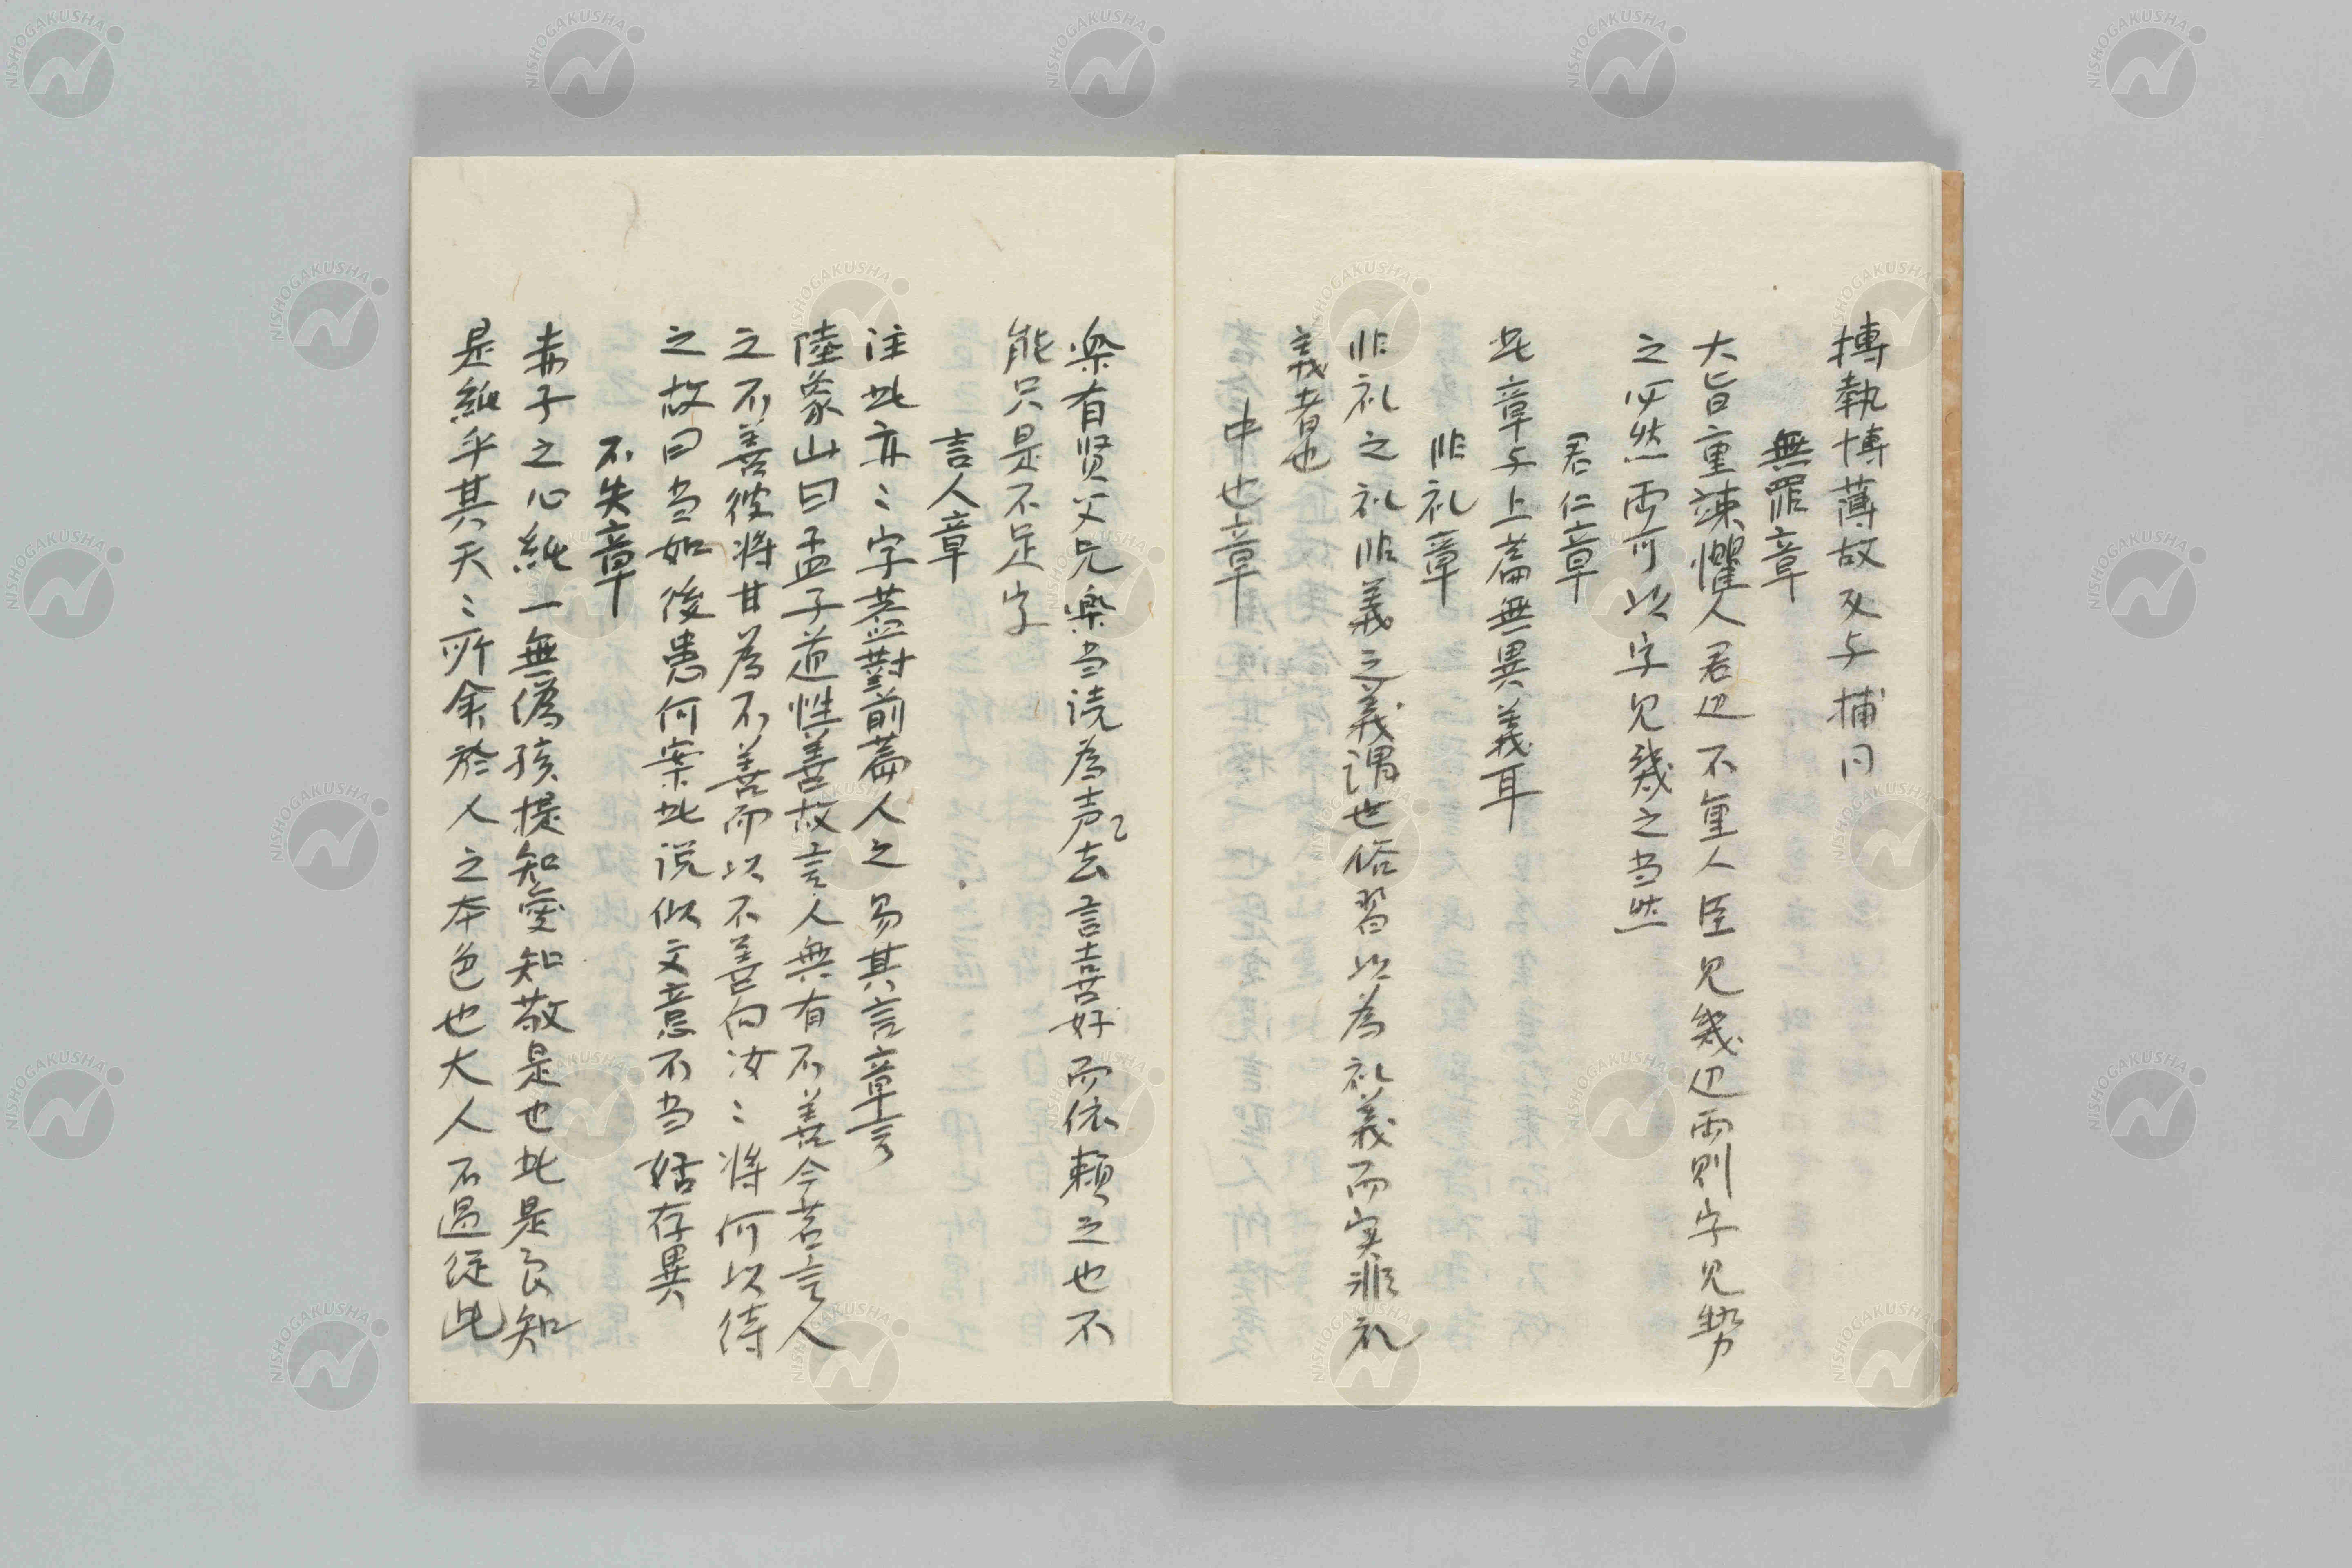 搏執博薄故又与捕同
無罪章
大旨重竦懼人君辺不重人臣見幾辺両則字見勢
之必然両可以字見幾之当然
君仁章
此章与上篇無異義耳
非礼章
非礼之礼非義之義謂世俗習以為礼義而実非礼
義者也
中也章
楽有賢父兄楽当読為声去言喜好而依頼之也不
能只是不足字
言人章
注此亦〻字蓋對前篇人之易其言章言
陸象山曰孟子道性善故言人無有不善今若言人
之不善彼将甘為不善而以不善向汝〻将何以待
之故曰当如後患何案此説似文意不当姑存異
不失章
赤子之心純一無偽孩提知愛知敬是也此是良知
是純乎其天〻所余於人之本色也大人不過従此
NISHOGAKUSHA